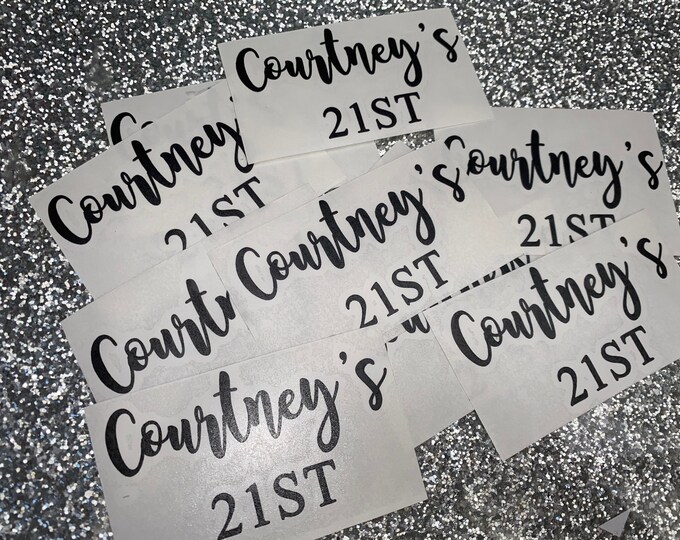 Courtney's
21ST
Courtney
21ST
Courtney's
21ST
Courtney's
21ST
Courtney's
21ST
Courtney's
21ST